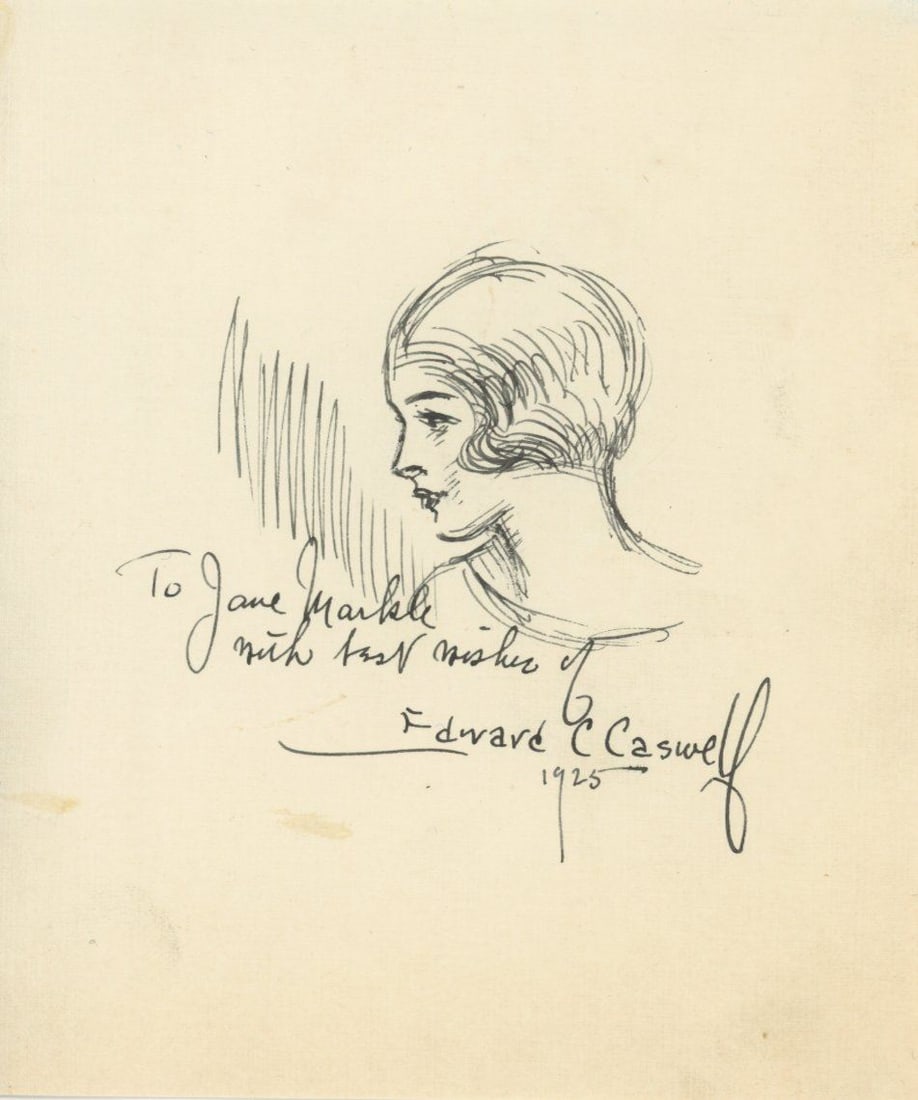 To Jane Markle
with best wishes of
Edward C Caswell
1925